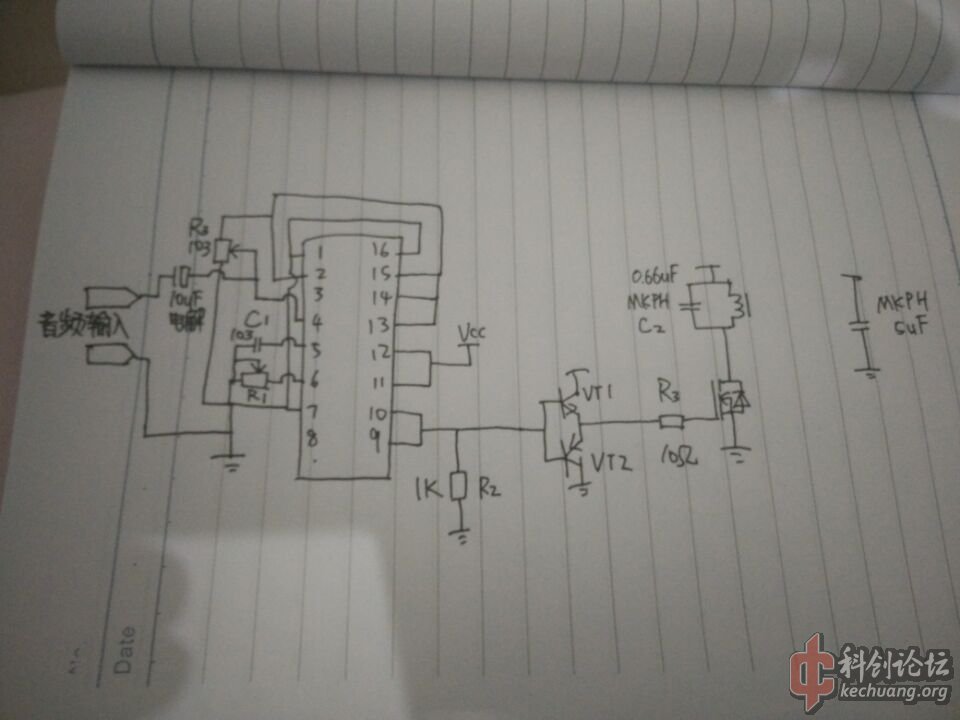 R4
103
10uF
电解
音频输入
C1
103
R1
1 16
2 15
3 14
4 13
5 12
6 11
7 10
8 9
Vcc
1K R2
VT1
VT2
R3
10Ω
0.66uF
MKPH
C2
MKPH
5uF
Date
科创论坛
kechuang.org